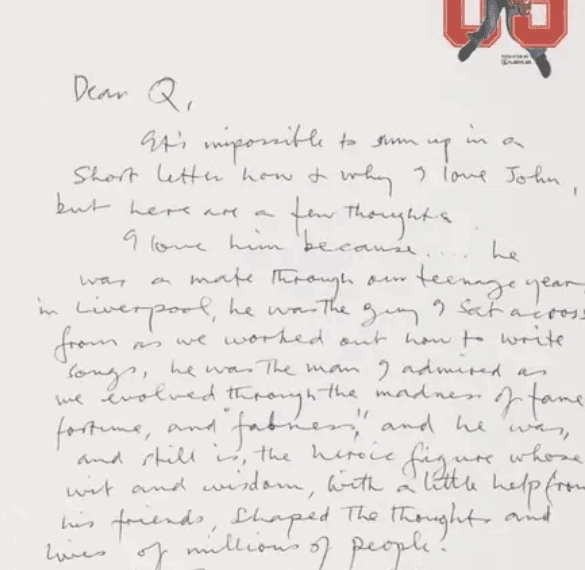 Dear Q,
It's impossible to sum up in a
Short letter how & why I love John,
but here are a few thoughts
I love him because.... he
was a mate through our teenage years
in Liverpool, he was the guy I sat across
from as we worked out how to write
songs, he was the man I admired as
we evolved through the madness of fame
fortune, and "fabness," and he was,
and still is, the heroic figure whose
wit and wisdom, with a little help from
his friends, shaped the thoughts and
lives of millions of people.